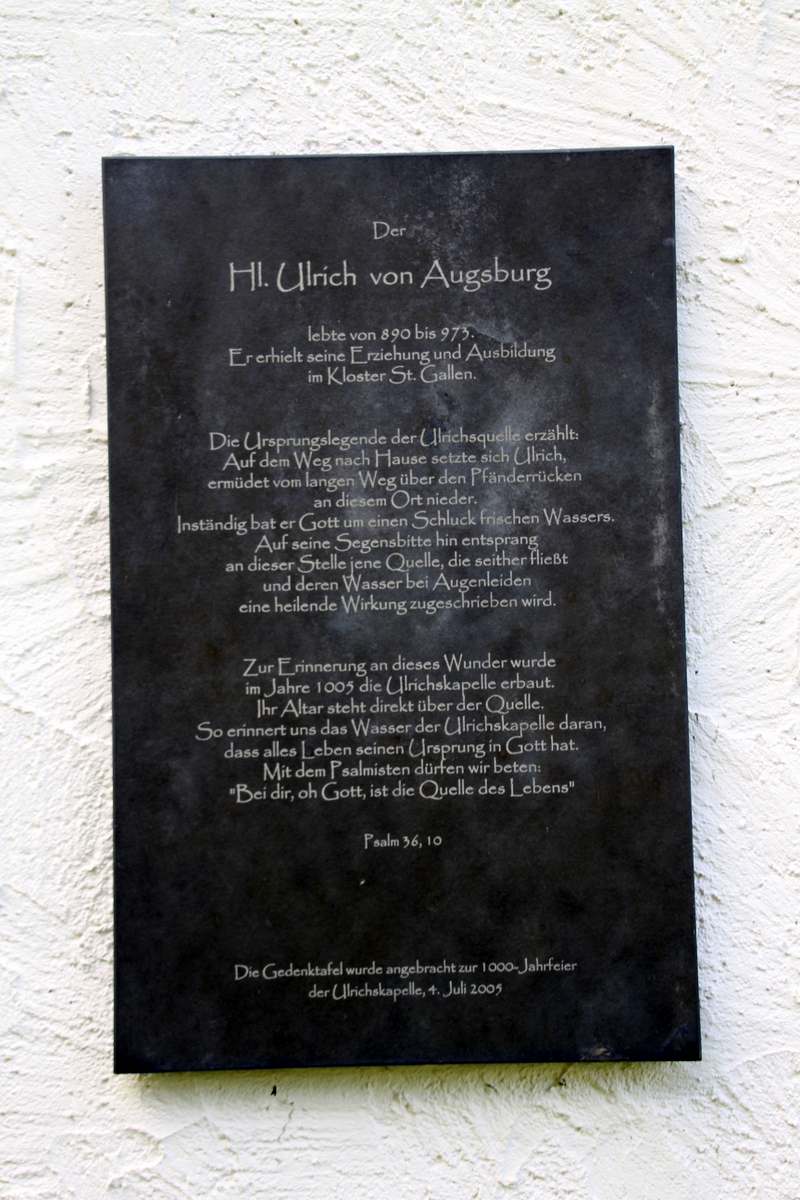 Der
Hl. Ulrich von Augsburg
lebte von 890 bis 973.
Er erhielt seine Erziehung und Ausbildung
im Kloster St. Gallen.
Die Ursprungslegende der Ulrichsquelle erzählt:
Auf dem Weg nach Hause setzte sich Ulrich,
ermüdet vom langen Weg über den Pfänderrücken
an diesem Ort nieder.
Inständig bat er Gott um einen Schluck frischen Wassers.
Auf seine Segensbitte hin entsprang
an dieser Stelle jene Quelle, die seither fließt
und deren Wasser bei Augenleiden
eine heilende Wirkung zugeschrieben wird.
Zur Erinnerung an dieses Wunder wurde
im Jahre 1005 die Ulrichskapelle erbaut.
Ihr Altar steht direkt über der Quelle.
So erinnert uns das Wasser der Ulrichskapelle daran,
dass alles Leben seinen Ursprung in Gott hat.
Mit dem Psalmisten dürfen wir beten:
"Bei dir, oh Gott, ist die Quelle des Lebens"
Psalm 36, 10
Die Gedenktafel wurde angebracht zur 1000-Jahrfeier
der Ulrichskapelle, 4. Juli 2005